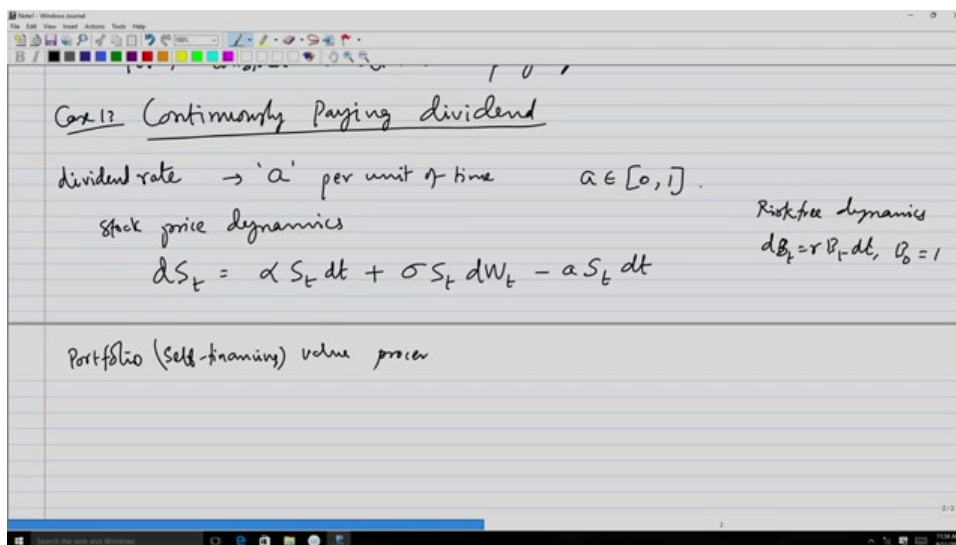 Note1 - Windows Journal
File Edit View Insert Actions Tools Help
Case 1: Continuously Paying dividend
dividend rate → 'a' per unit of time a ∈ [0, 1].
Stock price dynamics
Riskfree dynamics
dB_t = r B_t dt, B_0 = 1
dS_t = α S_t dt + σ S_t dW_t - a S_t dt
Portfolio (Self-financing) value process
2/2
2
Search the web and Windows